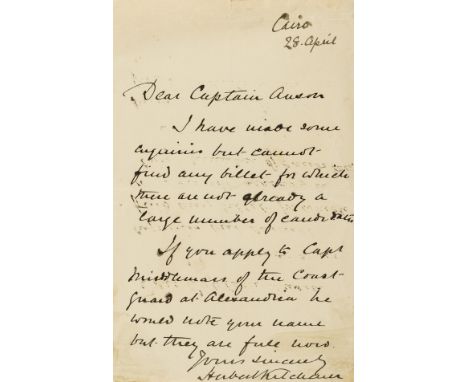 Cairo
28. April
Dear Captain Anson
I have made some
enquiries but cannot
find any billet for which
there are not already a
large number of candidates
If you apply to Capt
of the Coast
Guard at Alexandria he
would note your name
but they are full now.
Yours sincerely
Herbert Kitchener